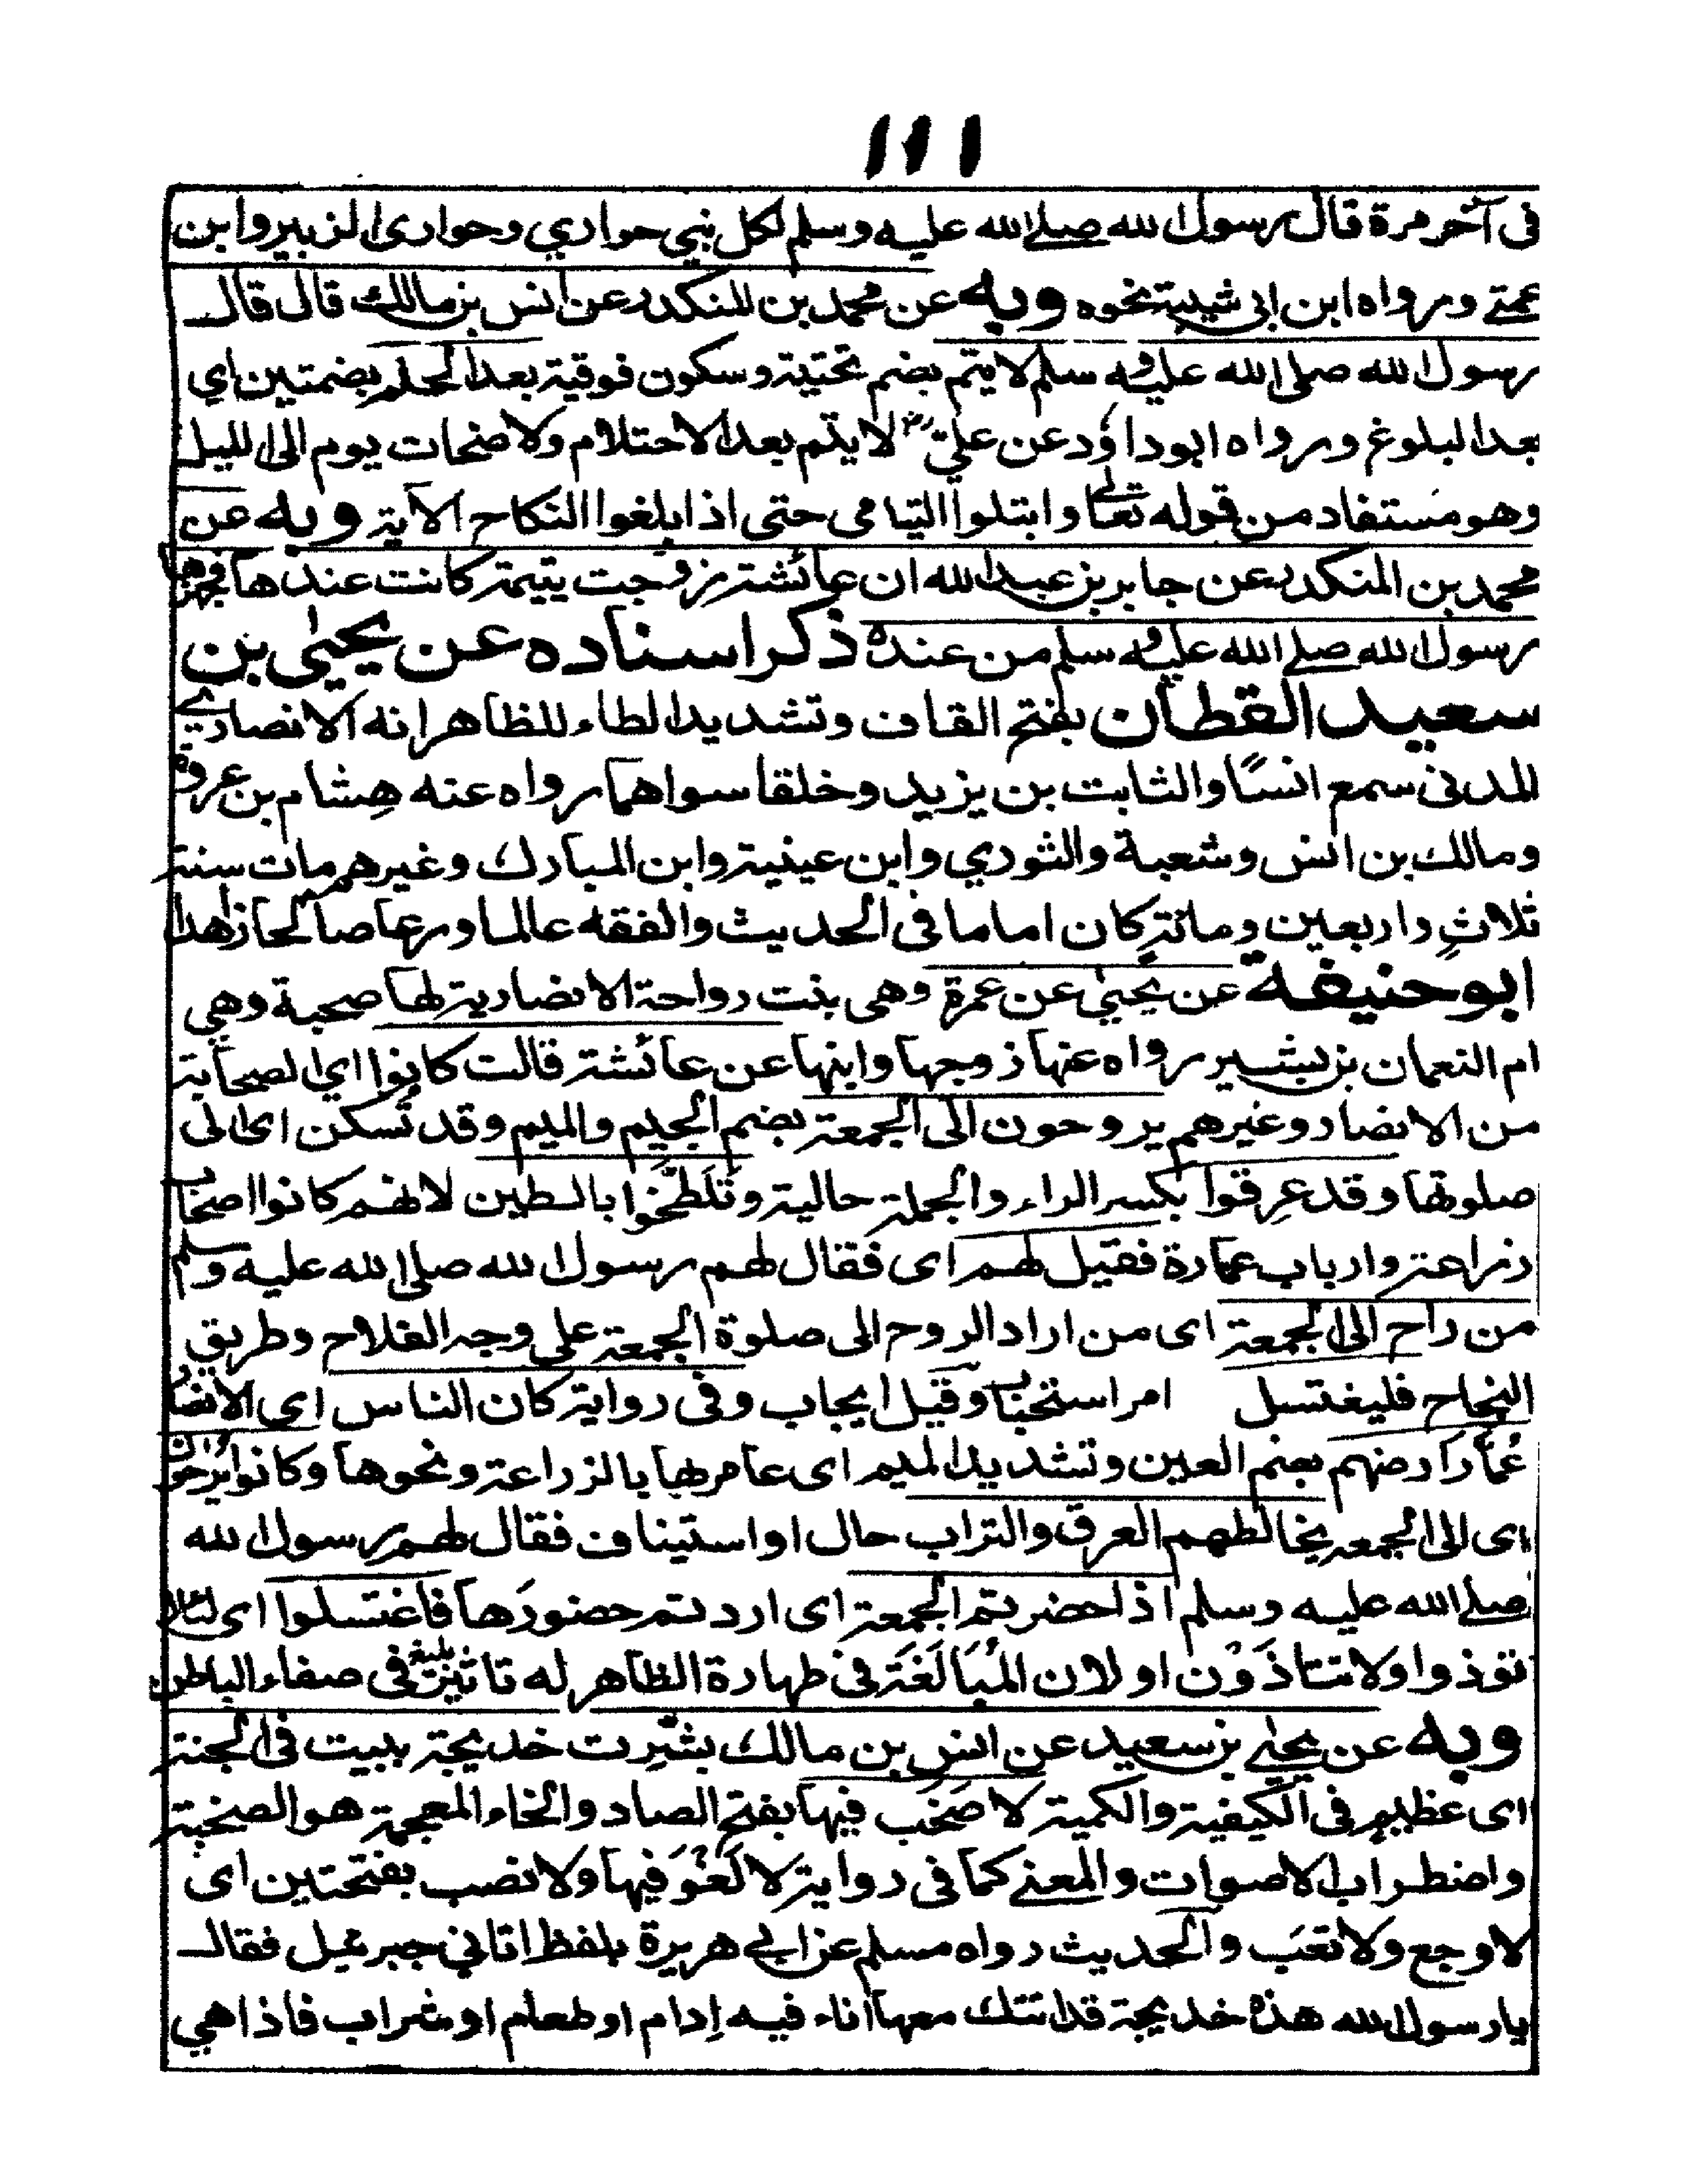 ١١١
فى آخر مرة قال رسول الله صلى الله عليه وسلم لكل نبي حواري وحوارى الزبير وابن
عمتے ورواه ابن ابى شيبة نحوه وبه عن محمد بن المنكدر عن انس بن مالك قال قال
رسول الله صلى الله عليه وسلم لا يتم بضم تحتية وسكون فوقية بعد الحلم بضمتين اي
بعد البلوغ ورواه ابوداؤد عن علي رض لا يتم بعد الاحتلام ولا ضحات يوم الى الليل
وهو مستفاد من قوله تعالى وابتلوا اليتامى حتى اذا بلغوا النكاح الآية وبه عن
محمد بن المنكدر عن جابر بن عبد الله ان عائشة زوجت يتيمة كانت عندها فجهزها
رسول الله صلے الله عليه وسلم من عنده ذكر اسناده عن يحيىٰ بن
سعيد القطان بفتح القاف وتشديد الطاء للظاهر انه الانصارے
المدنى سمع انسًا والثابت بن يزيد وخلقا سواهما رواه عنه هِشام بن عروة
ومالك بن انس وشعبة والثوري وابن عينية وابن المبارك وغيرهم مات سنة
ثلاثٍ واربعين ومائة كان اماما فى الحديث والفقه عالما ورعا صالحا زاهدا
ابو حنيفة عن يحيىٰ عن عمرة وهى بنت رواحة الانصارية لها صحبة وهي
ام النعمان بن بشير رواه عنها زوجها وابنها عن عائشة قالت كانوا اي الصحابة
من الانصار وغيرهم يروحون الى الجمعة بضم الجيم والميم وقد تُسكن اى الى
صلوتها وقد عرِقوا بكسر الراء والجملة حالية وتَلَطَّخوا بالطين لانهم كانوا اصحاب
زراعة وارباب عمارة فقيل لهم اى فقال لهم رسول الله صلى الله عليه وسلم
من راح الى الجمعة اى من اراد الروح الى صلوة الجمعة على وجه الفلاح وطريق
النجاح فليغتسل امر استحباب وقيل ايجاب وفى رواية كان الناس اى الانصار
عُمّار ارضهم بضم العين وتشديد الميم اى عامريها بالزراعة ونحوها وكانوا يروحون
اى الى الجمعة يخالطهم العرق والتراب حال او استيناف فقال لهم رسول الله
صلے الله عليه وسلم اذا حضرتم الجمعة اى اردتم حضورَها فاغتسلوا اى لئلا
توذوا ولا تتاذَوْن او لان المُبَالَغَة فى طهارة الظاهر له تاثير بليغ فى صفاء الباطن
وبه عن يحيىٰ بن سعيد عن انس بن مالك بشّرت خديجة ببيت فى الجنة
اى عظيم فى الكيفية والكمية لا صَخَب فيها بفتح الصاد والخاء المعجمة هو الصخبة
واضطراب الاصوات والمعنے كما فى رواية لا لَغْوَ فيها ولا نصب بفتحتين اى
لا وجع ولا تعَب والحديث رواه مسلم عن ابي هريرة بلفظ اتاني جبرئيل فقال
يا رسول الله هذه خديجة قد اتتك معها اناء فيه اِدام او طعام او شراب فاذا هي